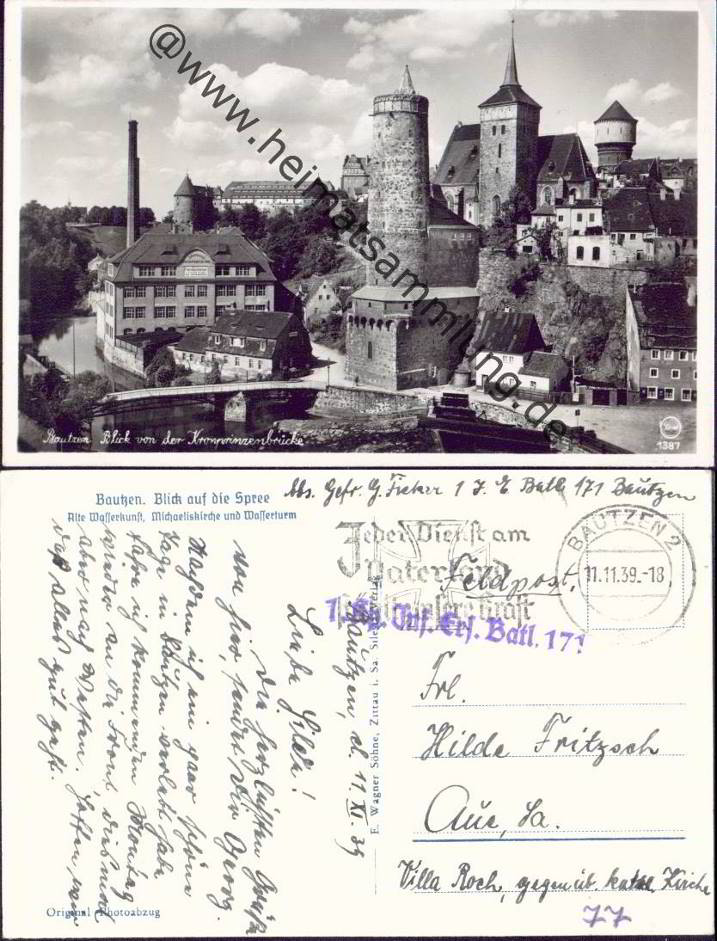 @www.heimatsammlung.de
Bautzen Blick von der Kronprinzenbrücke
1387
Bautzen. Blick auf die Spree
Alte Wasserkunst, Michaeliskirche und Wasserturm
Abs. Gefr. G. 1 J. E. Batl. 171 Bautzen
Jeder Dienst am
Vaterland
Feldpost.
BAUTZEN 2
11.11.39.-18
Inf. Ers. Batl. 171
Frl.
Hilde Fritzsch
Aue, Sa.
Villa Roch, gegenüb. kathol. Kirche
77
E. Wagner Söhne, Zittau i. Sa.
Bautzen, d. 11. XI. 39
Liebe Hilde!
Die herzlichsten Grüße
von hier, sendet Dir Georg.
Nachdem ich ein paar schöne
Tage in Bautzen verlebt habe
fahre ich kommenden Montag
wieder an die Front diesmal
aber nach Westen. Hoffen wir
daß alles gut geht.
Original-Photoabzug